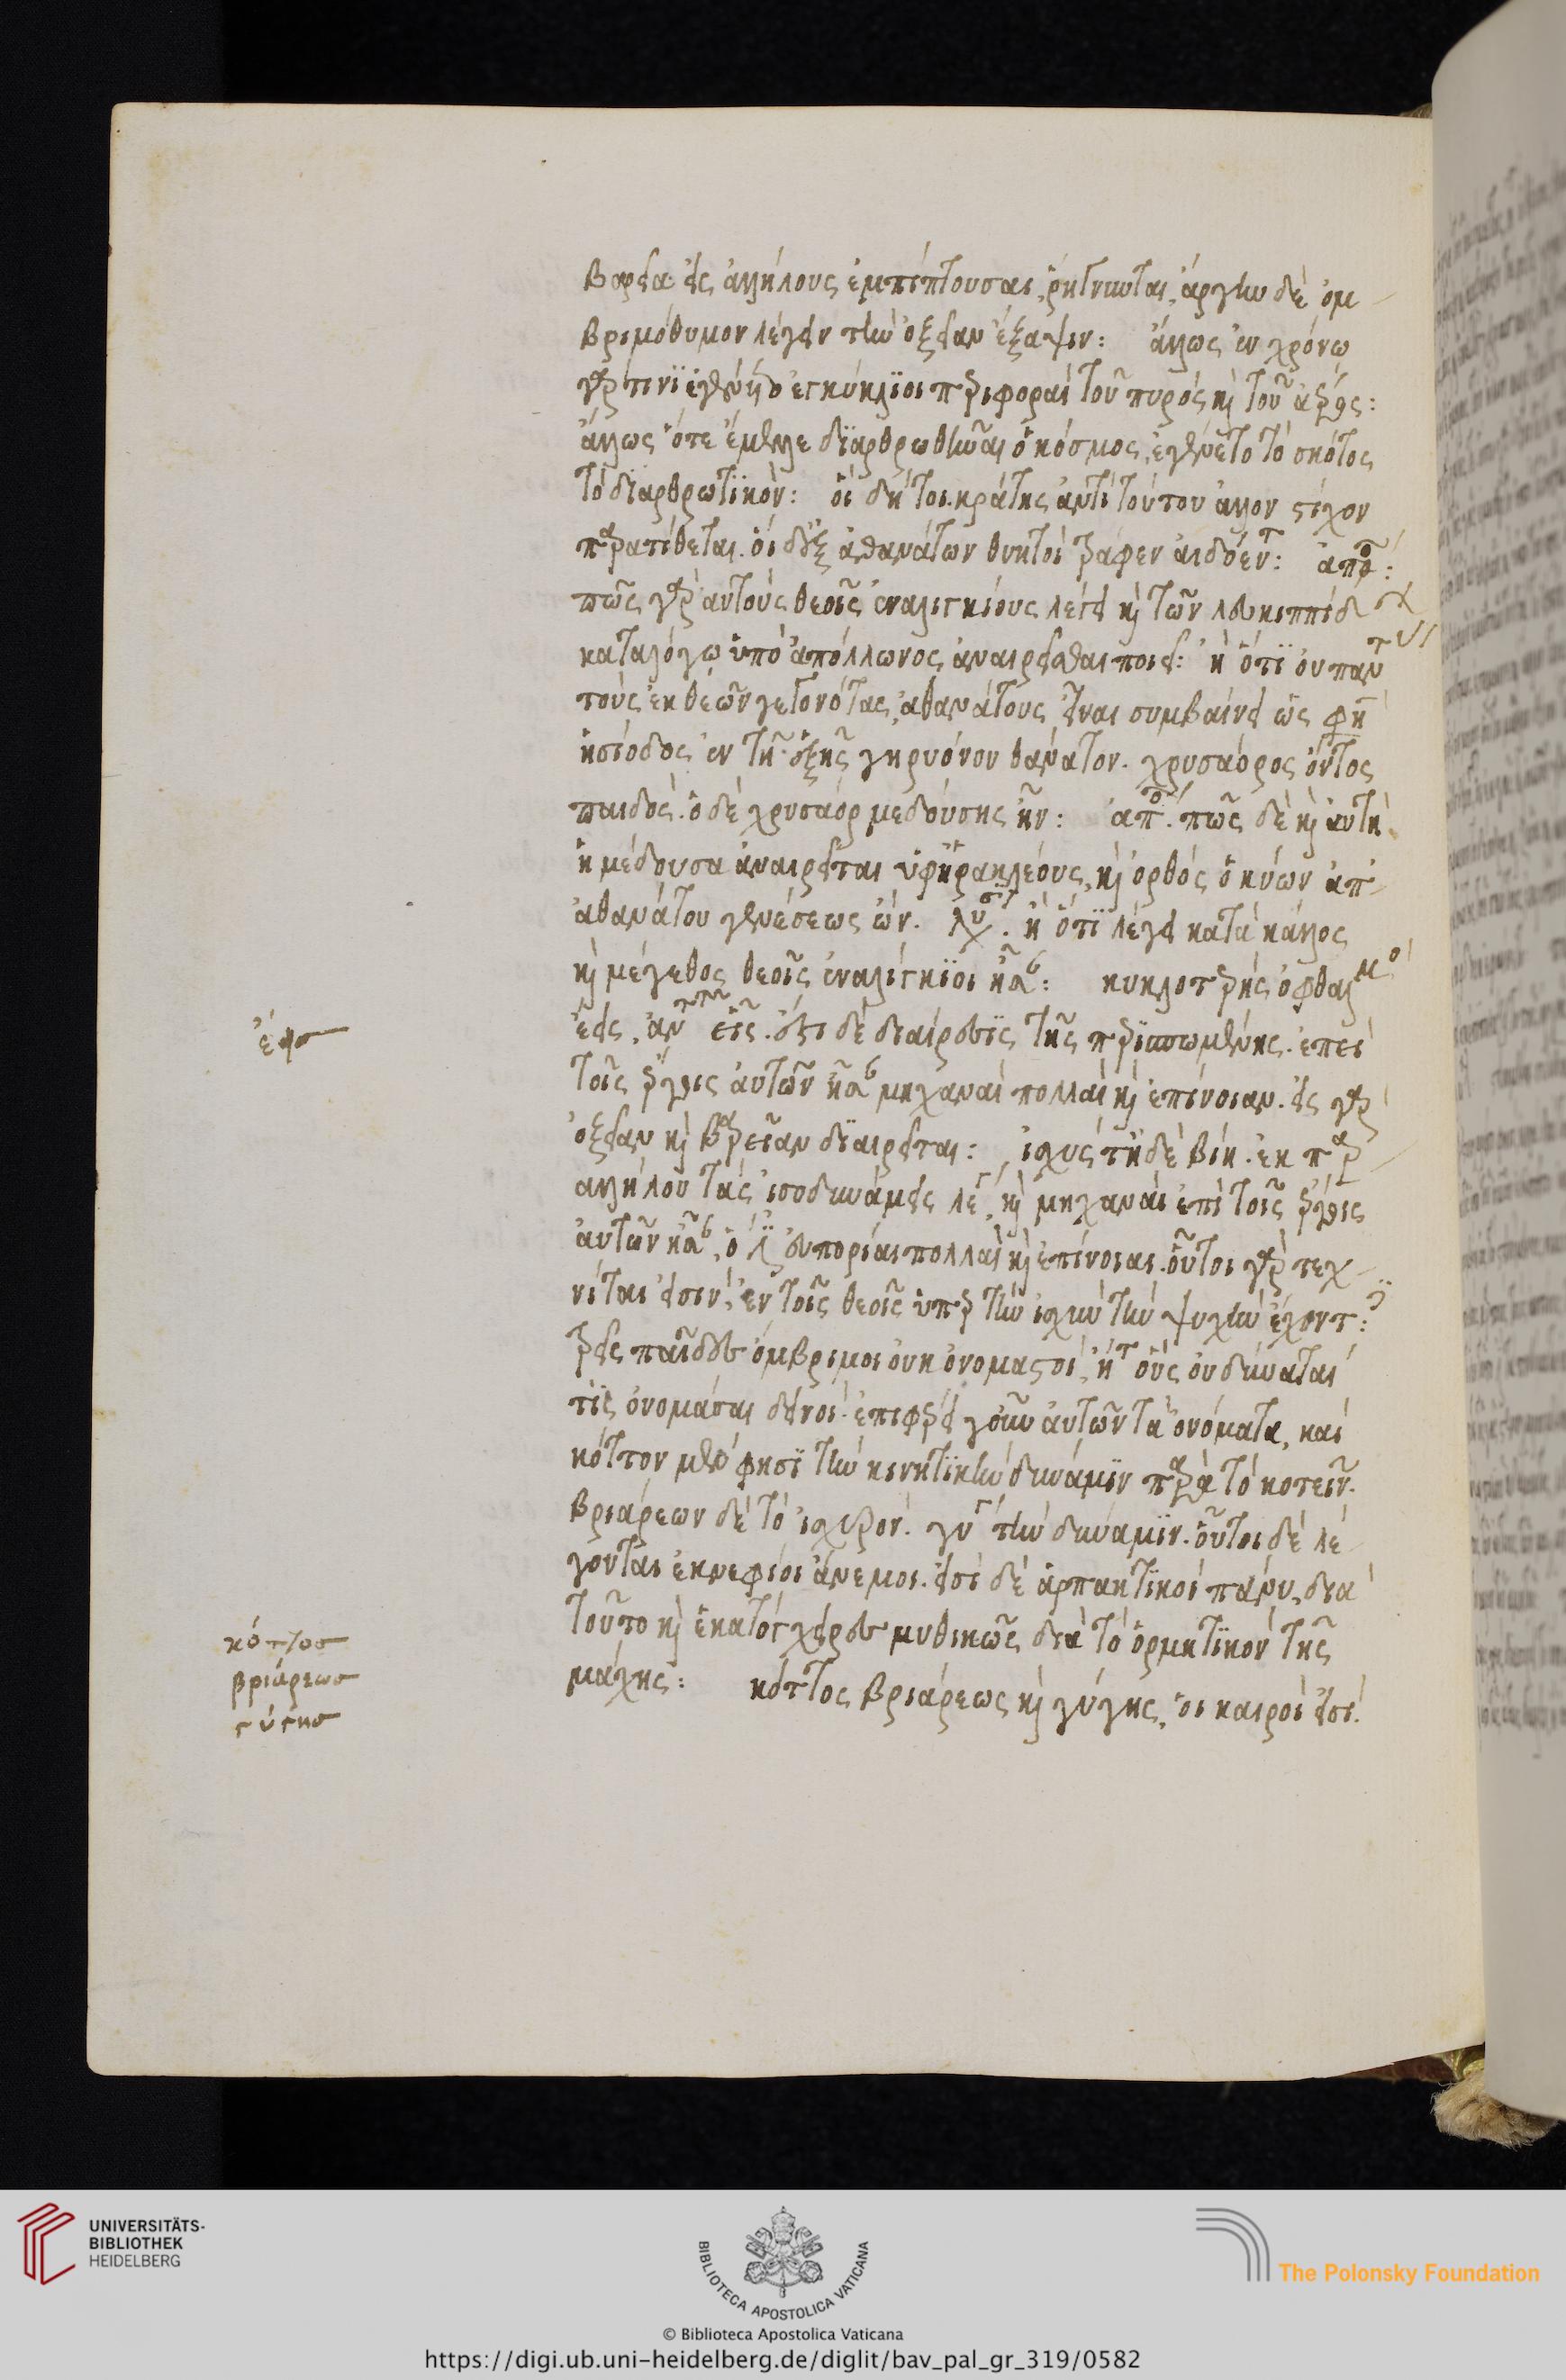 βαρεῖα εἰς ἀλλήλους ἐμπίπτουσαι, ῥήγνυνται, ἄργην δὲ ὀμ
βριμόθυμον λέγειν τὴν ὀξεῖαν ἔξαψιν: ἄλλως ἐν χρόνω
γὰρ τινὶ ἐγένοντο ἐγκύκλϊοι περιφοραὶ τοῦ πυρός καὶ τοῦ ἀέρος:
ἄλλως ὅτε ἔμελλε δϊαρθρωθῆναι ὁ κόσμος, ἐγένετο τὸ σκότος
τὸ διαρθρωτϊκὸν: οἱ δή τοι. κράτης ἀντὶ τούτου ἄλλον στίχον
παρατίθεται. οἱ δ' ἐξ ἀθανάτων θνητοὶ τράφεν αὐδήεντ: ἀπο:
πῶς γὰρ αὐτοὺς θεοῖς ἐναλιγκίους λέγει καὶ τῶν λευκιππίδ
καταλόγω ὑπὸ ἀπόλλωνος ἀναιρεῖσθαι ποιεῖ: ἢ ὅτϊ οὐ παντ
τοὺς ἐκ θεῶν γεγονότας, ἀθανάτους εἶναι συμβαίνει ὥς φη
ἡσίοδος ἐν τῆ ἑξῆς γηρυόνου θάνατον. χρυσάορος ὄντος
παιδὸς. ὁ δὲ χρυσάορ μεδούσης ἦν: ἀπο. πῶς δὲ καὶ αὐτὴ
ἡ μέδουσα ἀναιρεῖται ὑφ' ἡρακλέους, καὶ ὀρθὸς ὁ κύων ἀπ
ἀθανάτου γενέσεως ὤν. λύσις. ἢ ὅτϊ λέγει κατὰ κάλλος
καὶ μέγεθος θεοῖς ἐναλίγκϊοι ἦσαν: κυκλοτερὴς ὀφθαλμο
ἔεις, ἀντὶ τοῦ εἷς. ἔστι δὲ διαίρεσϊς τῆς περισπωμένης. ἐπεὶ
τοῖς ἔργοις αὐτῶν ἦσαν μηχαναὶ πολλαὶ καὶ ἐπίνοιαν. εἰς γὰρ
ὀξεῖαν καὶ βαρεῖαν δϊαιρεῖται: ἰσχύς τ' ἠδὲ βίη. ἐκ παρ
αλλήλου τὰς ἰσοδυνάμεις λέγει, καὶ μηχαναὶ ἐπὶ τοῖς ἔργοις
αὐτῶν ἦσαν, ὅ ἐστι εὐπορίαι πολλαὶ καὶ ἐπίνοιαι. οὗτοι γὰρ τεχ
νίται εἰσὶν, ἐν τοῖς θεοῖς ὑπὲρ τὴν ἰσχὺν τὴν ψυχὴν ἔχοντες:
τρεῖς παῖδες ὄμβριμοι οὐκ ὀνομαστοί, ἤτοι οὓς οὐ δύναται
τὶς ὀνομάσαι δεινοί. ἐπιφέρει γοῦν αὐτῶν τὰ ὀνόματα, καὶ
κόττον μὲν φησὶ τὴν κινητϊκὴν δύναμϊν παρὰ τὸ κοτεῖν.
βριάρεων δὲ τὸ ἰσχυρόν. γύγ τὴν δύναμϊν. οὗτοι δὲ λέ
γονται ἐκνεφίοι ἄνεμοι. εἰσὶ δὲ ἁρπακτϊκοὶ πάνυ, διὰ
τοῦτο καὶ ἑκατόγχειρες μυθικῶς διὰ τὸ ὁρμητϊκὸν τῆς
μάχης: κόττος βριάρεως καὶ γύγης, οἱ καιροὶ εἰσὶ.
ἔεισ
κόττοσ
βριάρεωσ
γύγησ
UNIVERSITÄTS-
BIBLIOTHEK
HEIDELBERG
BIBLIOTECA APOSTOLICA VATICANA
The Polonsky Foundation
© Biblioteca Apostolica Vaticana
https://digi.ub.uni-heidelberg.de/diglit/bav_pal_gr_319/0582